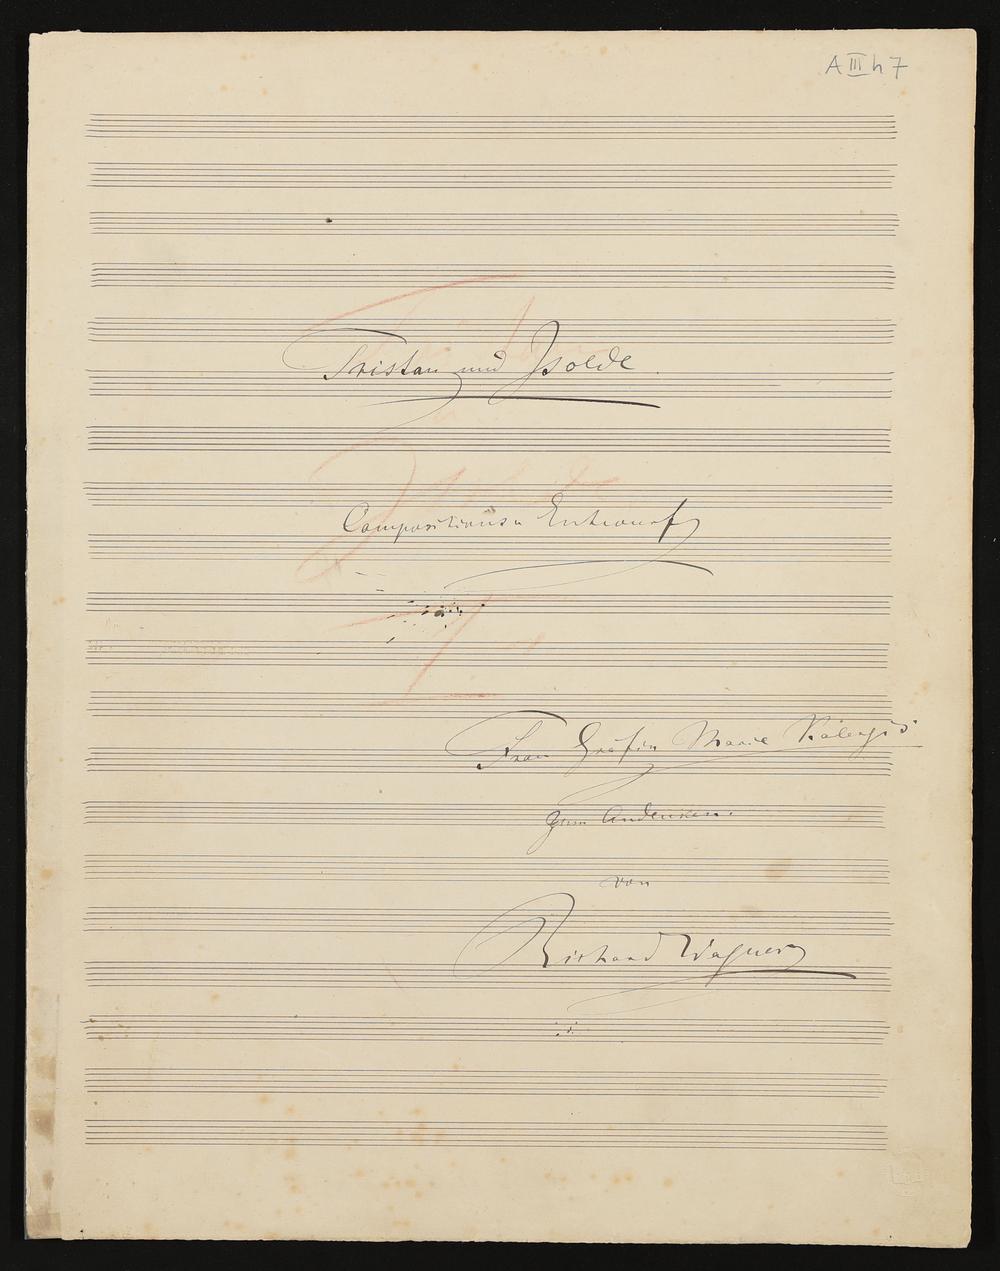 A III h 7
Tristan und Isolde.
Compositions Entwurf
Frau Gräfin Marie Kalergis
zum Andenken.
von
Richard Wagner